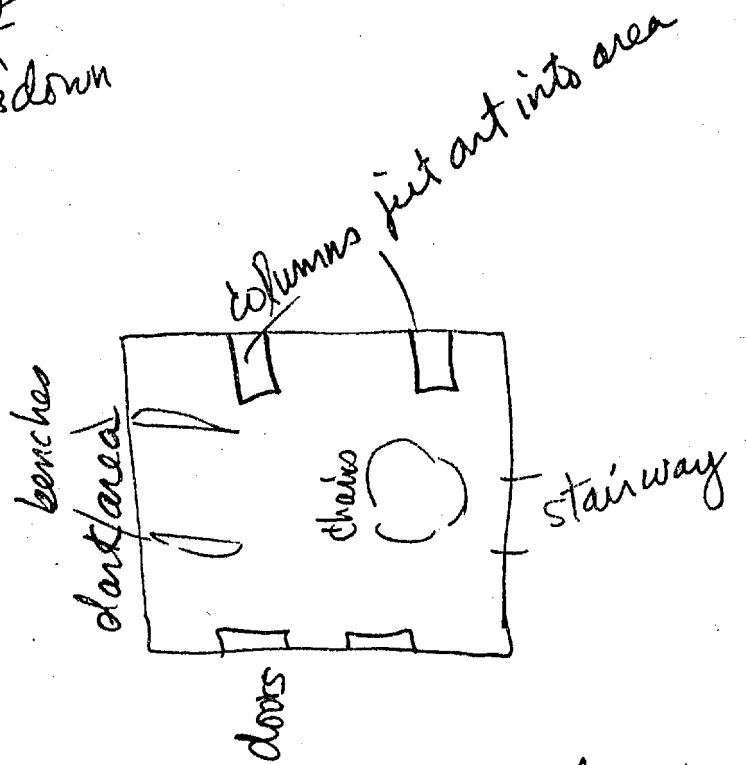 down
columns jut out into area
benches
dark area
chairs
stairway
doors